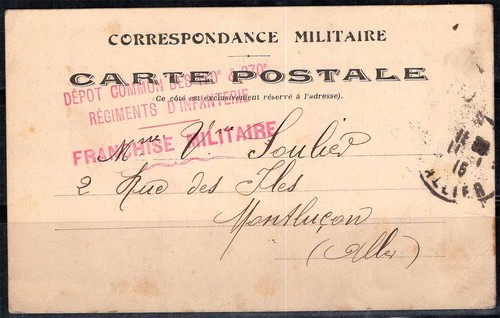 CORRESPONDANCE MILITAIRE
CARTE POSTALE
(Ce côté est exclusivement réservé à l'adresse).
DÉPOT COMMUN DES 0° 270°
RÉGIMENTS D'INFANTERIE
FRANCHISE MILITAIRE
Mme Vve Soulier
2 Rue des Iles
Montluçon
(Allier)
15
ALLIER